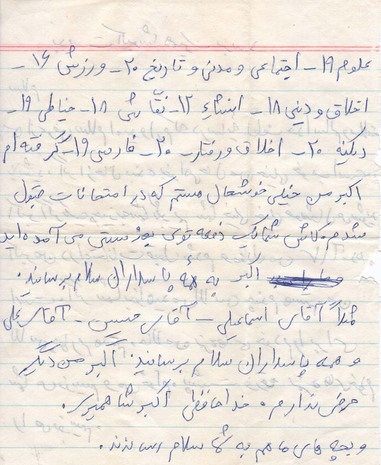 علوم ۱۹ – اجتماعی و مدنی و تاریخ ۲۰ – ورزش ۱۶ –
اخلاق و دینی ۱۸ – انشاء ۱۲ – نقاشی ۱۸ – خیاطی ۱۹ –
دیکته ۲۰ – اخلاق و رفتار ۲۰ – فارسی ۱۹ – گرفته ام
اکبر من خیلی خوشحال هستم که در امتحانات قبول
شدم. کاش شما یک دفعه توی پستی می آمده اید
اکبر به همه پاسداران سلام برسانید.
مثلاً آقای اسماعیلی – آقای حسن – آقای علی
و همه پاسداران سلام برسانید. اکبر من دیگر
عرضی ندارم. خداحافظ اکبر شاهمیری.
و بچه های ما هم به شما سلام رساندند.